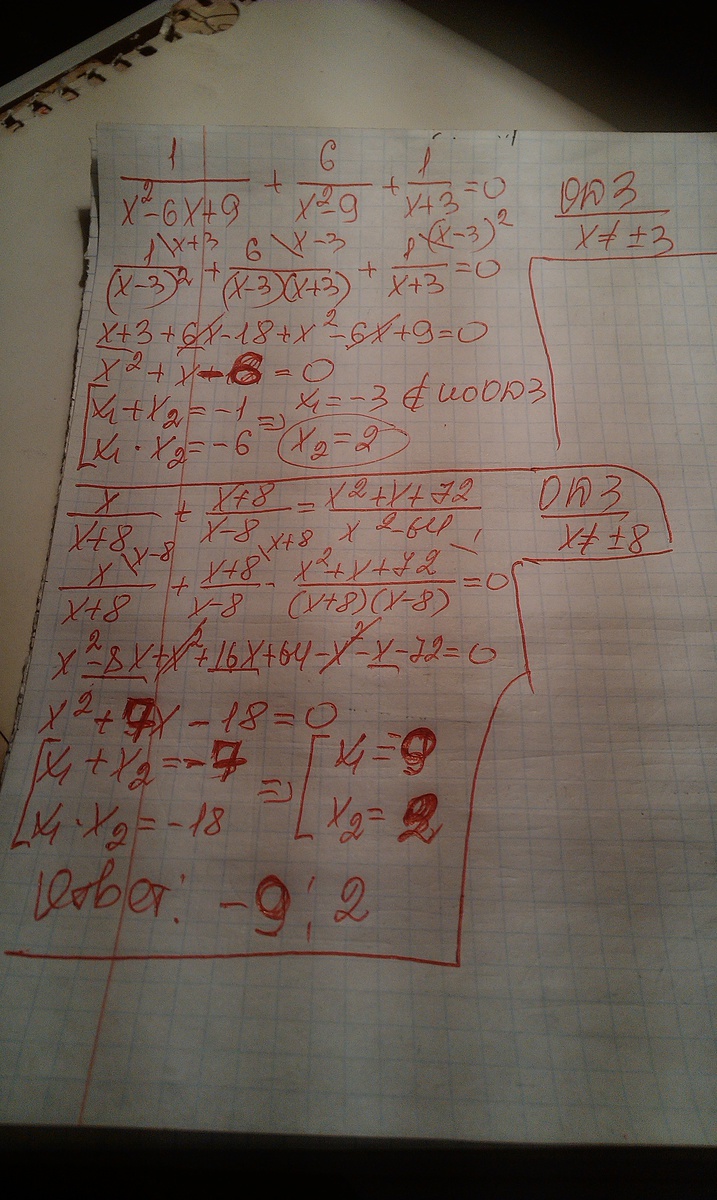 1/(x²-6x+9) + 6/(x²-9) + 1/(x+3) = 0
ОДЗ
x ≠ ±3
1\x+3/(x-3)² + 6\x-3/(x-3)(x+3) + 1\(x-3)²/(x+3) = 0
x+3+6x-18+x²-6x+9=0
x²+x-6=0
[x₁+x₂=-1 => x₁=-3 ∉ по ОДЗ
x₁·x₂=-6 x₂=2
x/(x+8) + (x+8)/(x-8) = (x²+x+72)/(x²-64)
ОДЗ
x ≠ ±8
x\x-8/(x+8) + x+8\x+8/(x-8) - x²+x+72\1/(x+8)(x-8) = 0
x²-8x+x²+16x+64-x²-x-72=0
x²+7x-18=0
[x₁+x₂=-7 => [x₁=-9
x₁·x₂=-18 x₂=2
Ответ: -9; 2